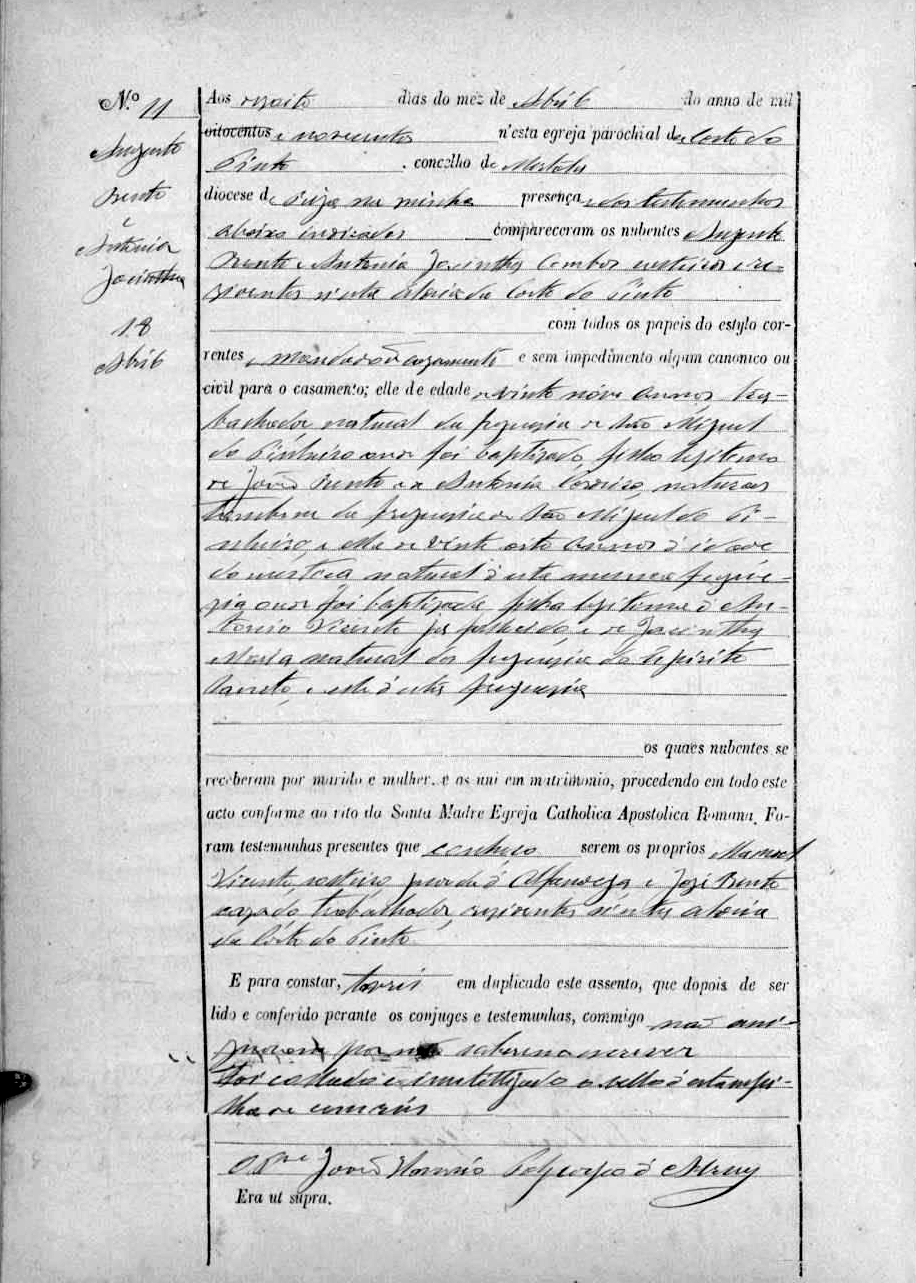 N.º 11
Augusto
Bento
e
Antonia
Jacintha
18
Abril
Aos dezoito dias do mez de Abril do anno de mil
oitocentos e novecentos n'esta egreja parochial de Corte do
Pinto, concelho de Mertola
diocese de Beja na minha presença e das testemunhas
abaixo indicadas compareceram os nubentes Augusto
Bento e Antonia Jacintha ambos solteiros e re-
zidentes n'esta aldeia da Corte do Pinto
com todos os papeis do estylo cor-
rentes, e sem impedimento algum canonico ou
civil para o casamento; elle de edade de vinte nove annos tra-
balhador natural da freguezia de São Miguel
do Pinheiro onde foi baptizado, filho legitimo
de João Bento e de Antonia, naturaes
tambem da freguezia de São Miguel do Pi-
nheiro, e ella de vinte oito annos d'idade
domestica natural d'esta mesma fregue-
zia onde foi baptizada, filha legitima d'An-
tonio Vicente já fallecido, e de Jacintha
Maria natural da freguezia do Espirito
Santo, e esta d'esta freguezia
os quaes nubentes se
receberam por marido e mulher, e as uni em matrimonio, procedendo em todo este
acto conforme ao rito da Santa Madre Egreja Catholica Apostolica Romana. Fo-
ram testemunhas presentes que conheço serem os proprios Manoel
Vicente, solteiro, guarda d'Alfandega e José Bento
cazado trabalhador, rezidentes n'esta aldeia
da Corte do Pinto
E para constar, lavrei em duplicado este assento, que depois de ser
lido e conferido perante os conjuges e testemunhas, commigo não assi-
gnaram por não saberem escrever
Foi collado e inutilizado o sello d'estampi-
lha de cem réis
O P.re João
Era ut supra.